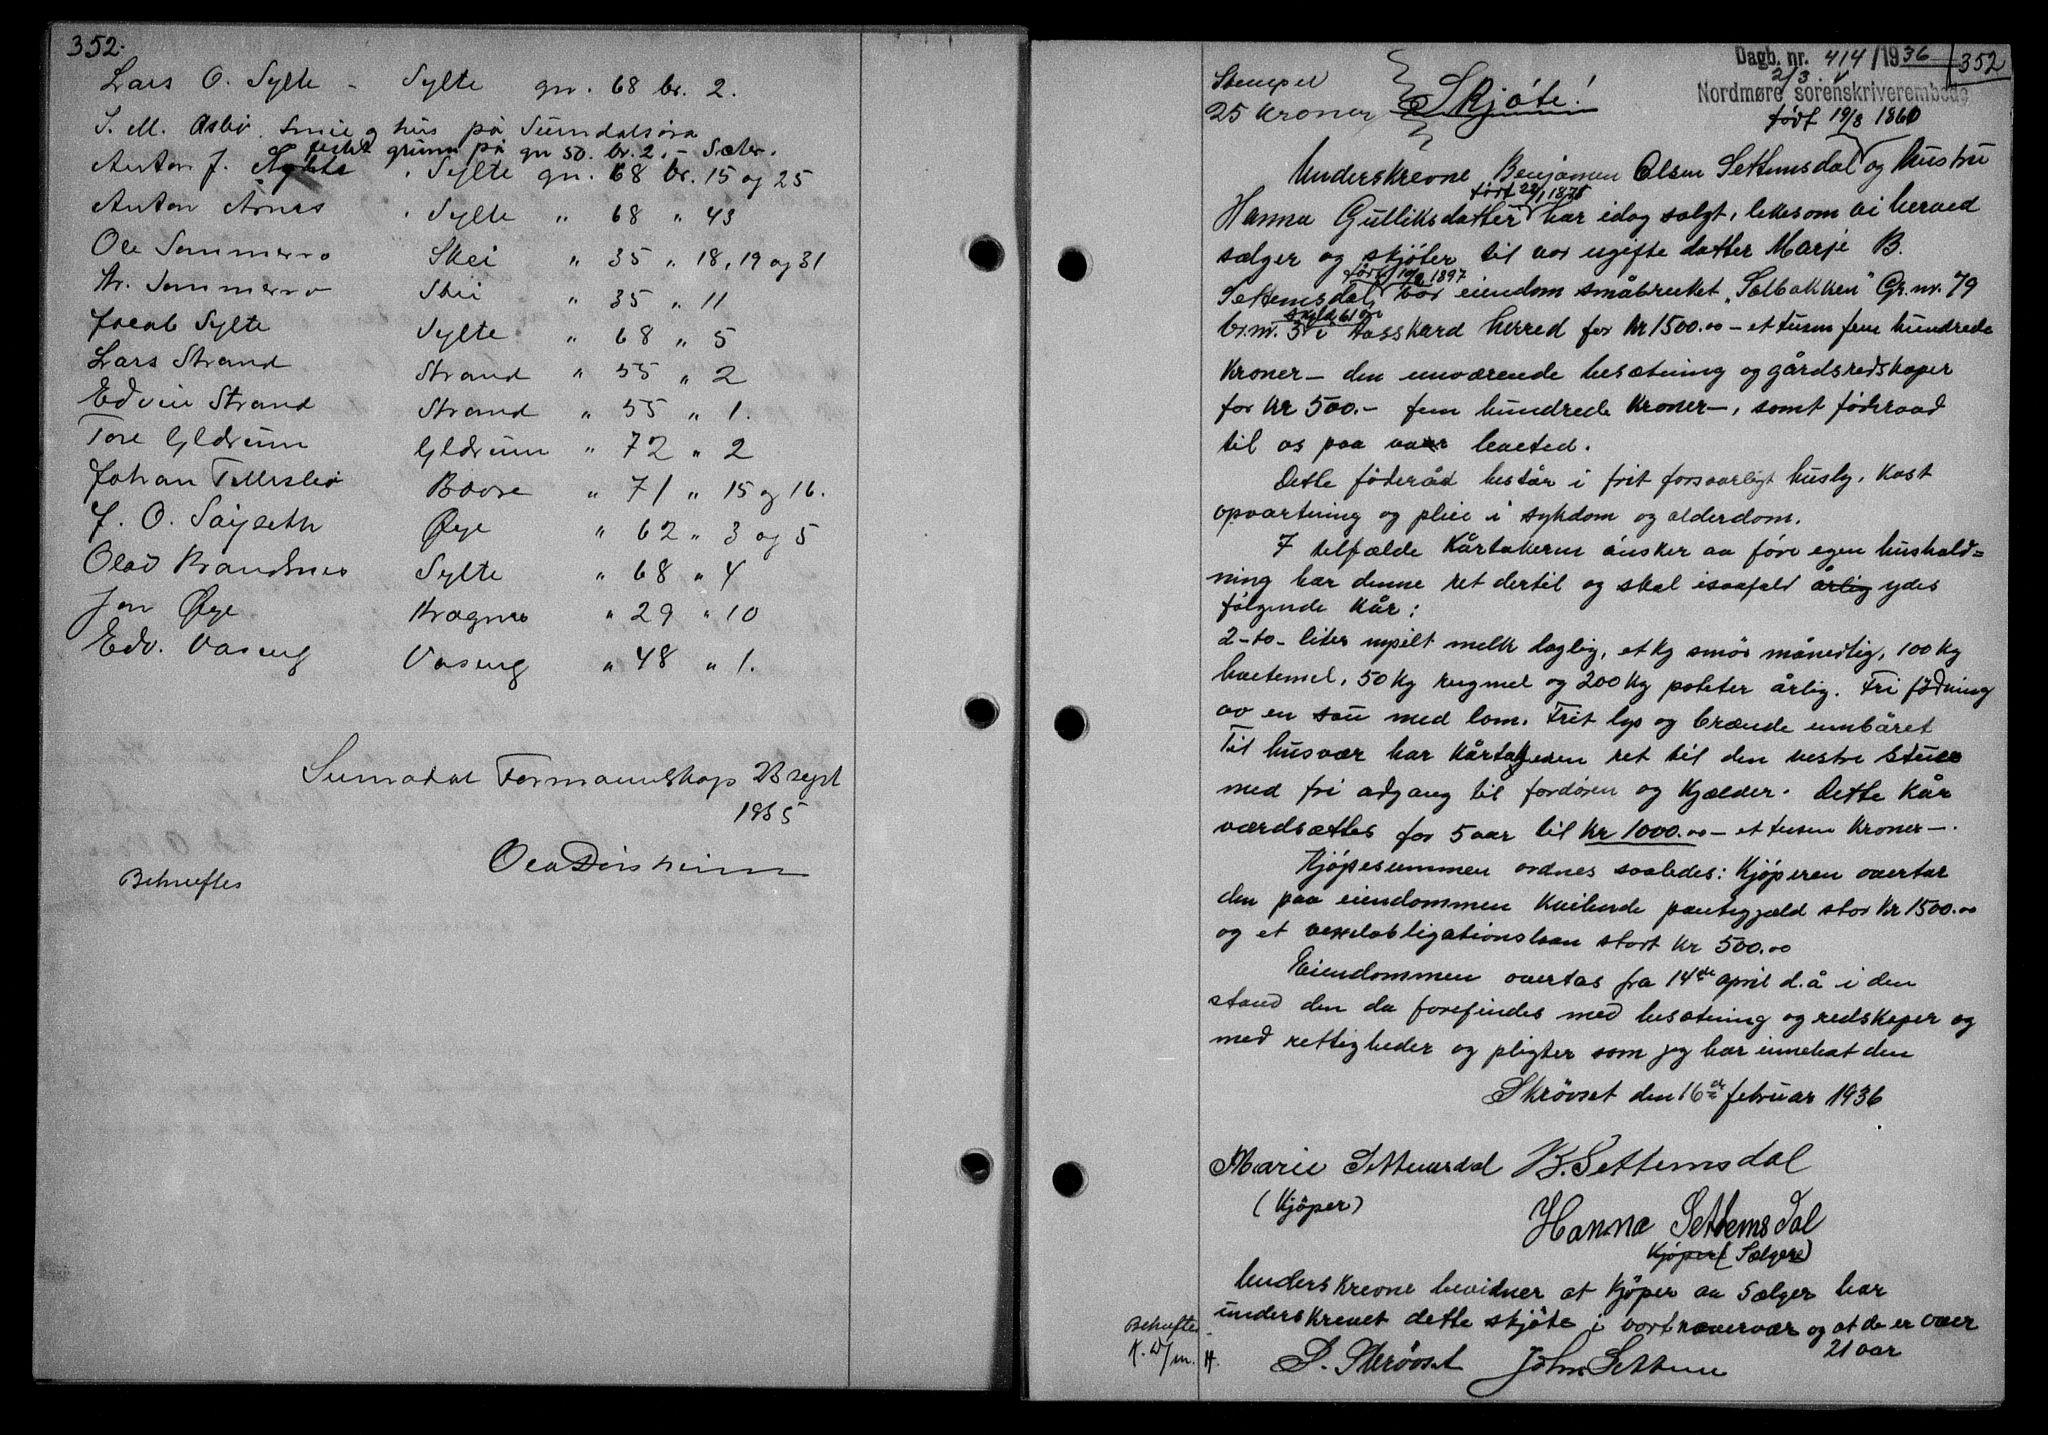 352.
Lars O. Sylte - Sylte gn. 68 br. 2.
S. M. Asbø. Smie og hus på Sundalsøra
festet grunn på gn 50. br. 2. - Sæter.
Anton J. Sylte " Sylte gn. 68 br. 15 og 25
Anton Årnes " Sylte " 68 " 43
Ole Sommerro Skei " 35 " 18, 19 og 31
Kr. Sommerro Skei " 35 " 11
Jacob Sylte Sylte " 68 " 5
Lars Strand Strand " 55 " 2
Edvin Strand Strand " 55 " 1.
Tore Glærum Glærum " 72 " 2
Johan Tellesbø Bævre " 71 " 15 og 16.
J. O. Saghseth Øye " 62 " 3 og 5
Olav Brandsnes Sylte " 68 " 4
Jon Øye Kragnes " 29 " 10
Edv. Vaseng Vaseng " 48 " 1.
Surnadal Formannskap 23 sept
1935
Ola
Bekreftes
Dagb. nr. 414/1936
352
2/3
Nordmøre sorenskriverembede
Stempel
25 Kroner Skjøte!
født 19/8 1860
Underskrevne Benjamen Olsen Settemsdal og hustru
født 22/1 1875
Hanna Gulliksdatter har idag solgt, likesom vi herved
sælger og skjøter til vor ugifte datter Marje B.
født 10/2 1897
Settemsdal, vor eiendom småbruket "Solbakken" Gr. nr. 79
skyld 61 øre
br.nr. 3 i Aasskard herred for kr 1500.00 - et tusen fem hundrede
kroner - den nuværende besætning og gårdsredskaper
for kr 500.- fem hundrede kroner -, samt føderaad
til os paa vaar levetid.
Dette føderåd består i frit forsvarligt husly, kost
opvartning og pleie i sykdom og alderdom.
I tilfælde kårtakeren ønsker aa føre egen hushold=
ning har denne ret dertil og skal isaafald årlig ydes
følgende kår:
2-to-liter nysilt melk daglig, et kg smør månedlig, 100 kg
havremel, 50 kg rugmel og 200 kg poteter årlig. Fri fødning
av en sau med lam. Frit lys og brænde innbåret
Til husvær har kårtakeren ret til den vestre stue
med fri adgang til fordøren og kjælder. Dette kår
værdsættes for 5 aar til kr 1000.00 - et tusen kroner -.
Kjøpesummen ordnes saaledes: Kjøperen overtar
den paa eiendommen kvilende pantegjæld stor kr 1500.00
og et vexelobligationslaan stort kr 500.00
Eiendommen overtas fra 14de april d.å i den
stand den da forefindes med besætning og redskaper og
med rettigheder og pligter som jeg har innehat den
Skrøvset den 16de februar 1936
Marie Settemsdal B. Settemsdal
(Kjøper)
Hanna Settemsdal
Kjøper (Sælgere)
Underskrevne bevidner at kjøper aa sælger har
underskrevet dette skjøte i vort nærvær og at de er over
21 aar
Bekreftes
P. Skrøvset John Settem